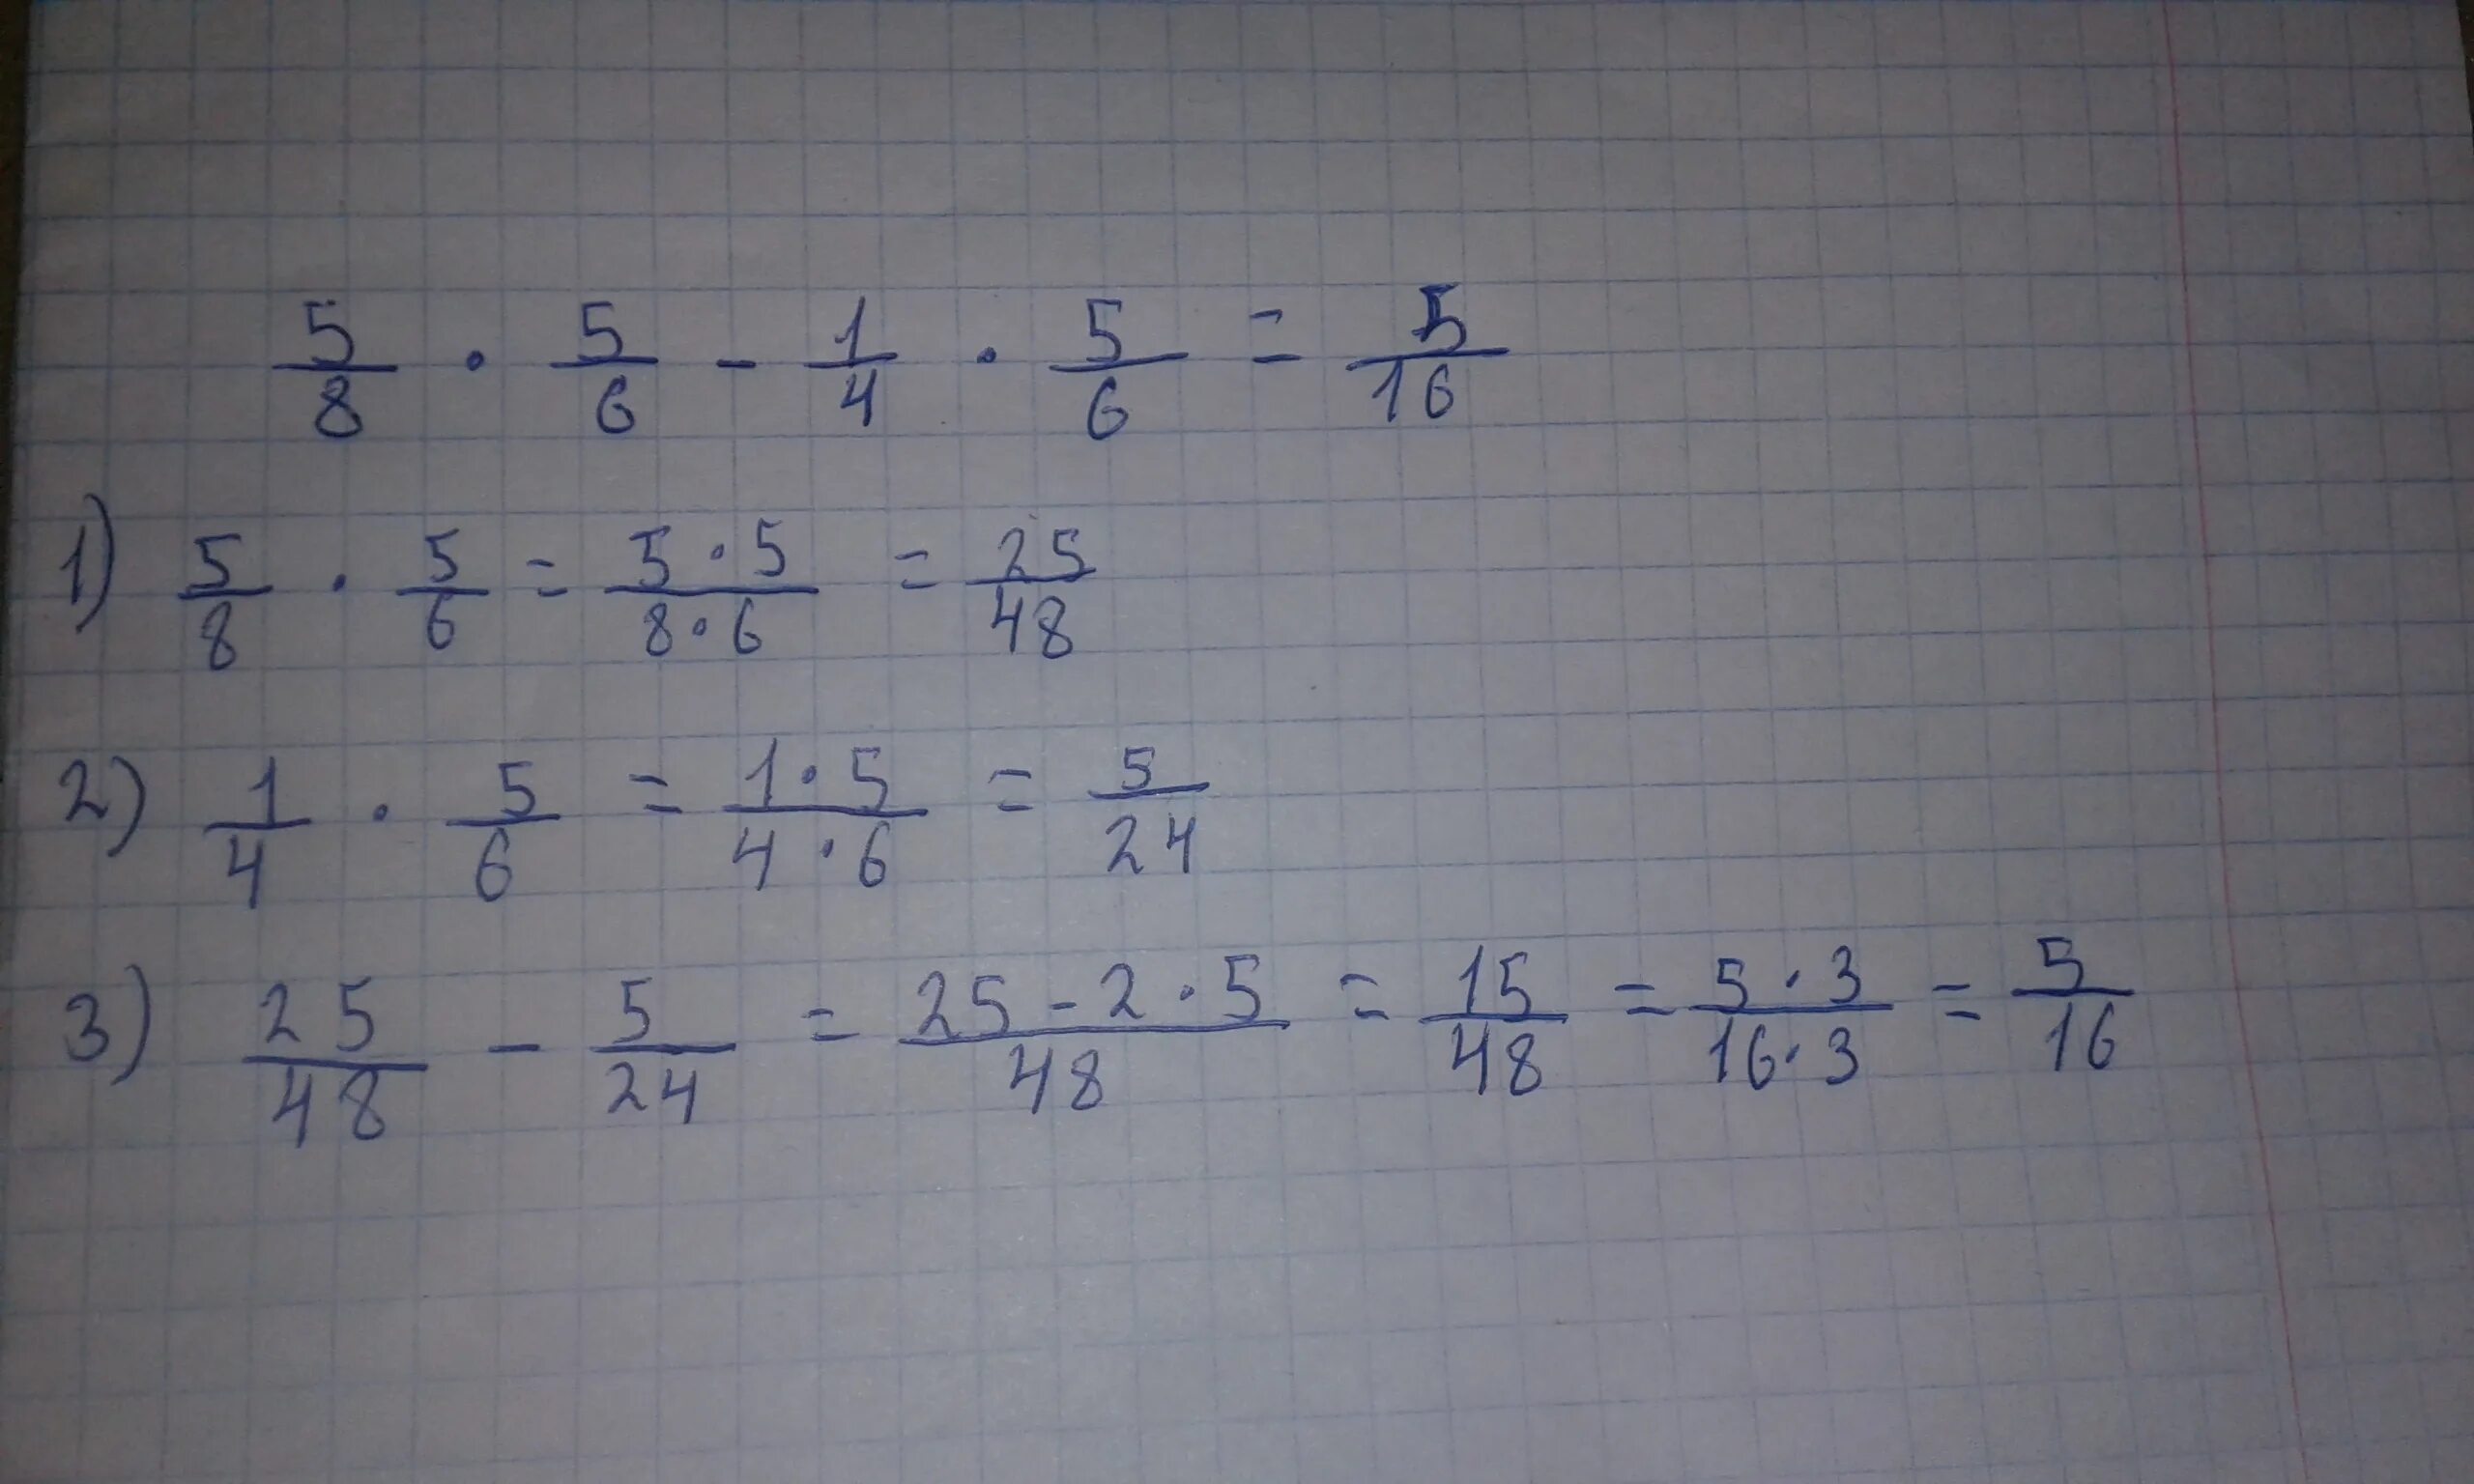 5/8 · 5/6 - 1/4 · 5/6 = 5/16
1) 5/8 · 5/6 = 5·5/8·6 = 25/48
2) 1/4 · 5/6 = 1·5/4·6 = 5/24
3) 25/48 - 5/24 = 25-2·5/48 = 15/48 = 5·3/16·3 = 5/16